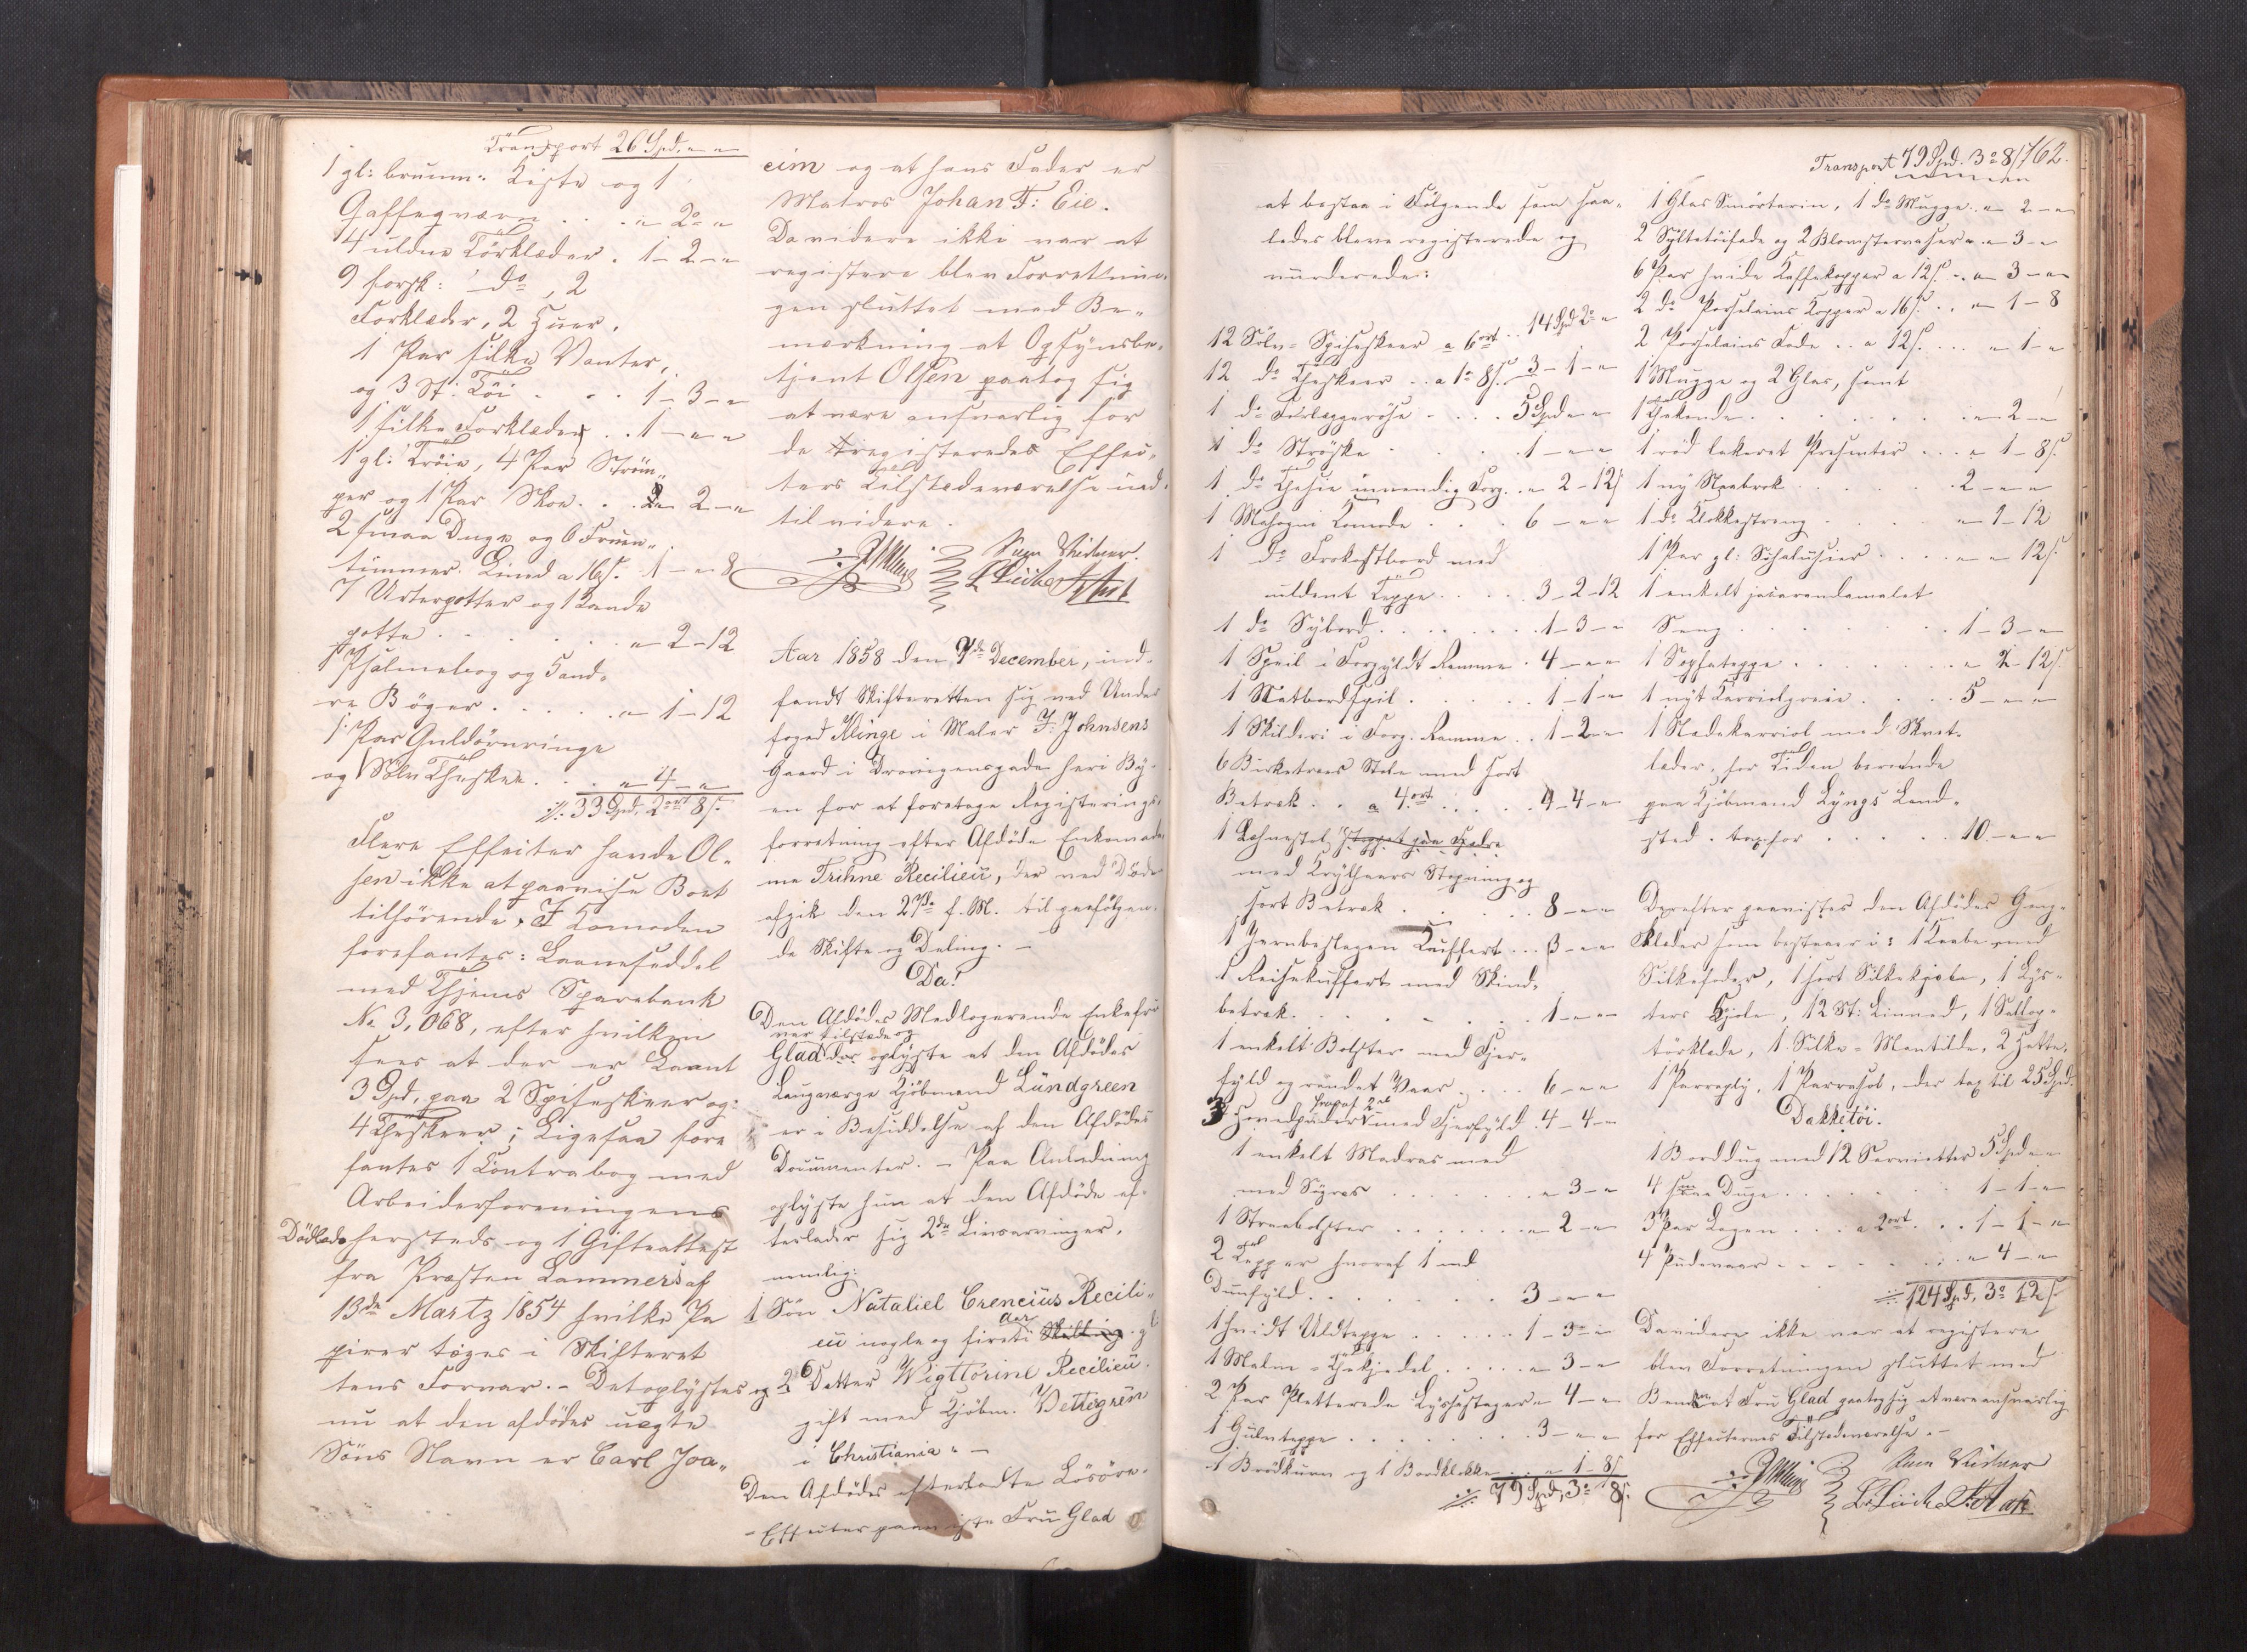 Transport 26 Spd. " "
1 gl: bruun: Kiste og 1
Caffeqværn . . . " 2 "
4 uldne Törklæder . 1 - 2 - "
9 forsk: do , 2
Forklæder, 2 Huer,
1 Par silke Vanter,
og 3 St: Töi . . . 1 - 3 - "
1 silke Forklæde . . 1 - " - "
1 gl: Tröie, 4 Par Ström-
per og 1 Par Skoe . . " 2 - "
2 smaa Duge og 6 Fruen-
timmer Linned a 16 s. 1 - " - 8
7 Urtepotter og 1 Vande
potte . . . . . " - 2 - 12
1 Psalmebog og 5 and-
re Böger . . . . " - 1 - 12
1 Par Guldörnringe
og 1 Sölv Theskee . . . " - 4 - "
./. 33 Spd. 2 ort 8 s.
Flere Effecter havde Ol-
sen ikke at paavise Boet
tilhörende, I Komoden
forefantes: Laaneseddel
med Thjems Sparebank
No 3,068, efter hvilken
sees at der er Laant
3 Spd. paa 2 Spiseskeer og
4 Theskeer; Ligesaa fore
fantes 1 Contrabog med
Arbeiderforeningens
Dödlade hersteds og 1 Gifteattest
fra Præsten Lammers af
13de Martz 1854 hvilke Pa
pirer toges i Skifteret
tens Forvar. - Det oplystes
nu at den afdödes uægte
Söns Navn er Carl Joa-
cim og at hans Fader er
Matros Johan F: Eie.
Da videre ikke var at
registere blev Forretnin-
gen sluttet med Be-
mærkning at Opsynsbe-
tjent Olsen paatog sig
at være ansvarlig for
de registeredes Effec-
ters Tilstedeværelse ind-
til videre.
Aar 1858 den 9de December, ind-
fandt Skifteretten sig ved Under
foged Klinge i Maler F: Johnsens
Gaard i Dronningensgade heri By-
en for at foretage Registerings-
forretning efter Afdöde Enkemada-
me Trihne Recilieu, der ved Döde
afgik den 27de f. M. til paafölgen-
de Skifte og Deling. -
Da!
Den Afdödes Medlogerende Enkefru
var tilstede og
Glad der oplyste at den Afdödes
Laugværge Kjöbmand Lündgreen
er i Besiddelse af den Afdödes
Documenter. - Paa Anledning
oplyste hun at den Afdöde ef-
terlader sig 2de Livsarvinger,
nemlig:
1 Sön Nataliel Crencius Recili-
eu nogle og fireti Aar gl:
og 2 Datter Wigttorine Recilieu
gift med Kjöbm. Bettegrén
i Christiania. -
Den Afdödes efterladte Lösöre-
- Effecter paaviste Fru Glad
at bestaa i Fölgende som saa-
ledes bleve registerede og
vurderede:
12 Sölv-Spiseskeer a 6 ort . . 14 Spd 2 "
12 do Theskeer . . a 1 o 8 s. 3 - 1 - "
1 do Forlæggeröse . . . . 5 Spd " "
1 do Ströske . . . . . 1 - " - "
1 do Thesie invendig Forg. . " 2 - 12 s
1 Mahogni Komode . . . 6 - " "
1 do Frokostbord med
uldent Teppe . . . . 3 - 2 - 12
1 do Sybord . . . . . . 1 - 3 - "
1 Speil i Forgyldt Ramme . 4 - " "
1 Natbordspil . . . . . 1 - 1 - "
1 Skilderi i Forg. Ramme . . 1 - 2 - "
6 Birketræes Stole med sort
Betræk . . a 4 ort . . . . 4 - 4 - "
1 Lehnestol stoppet
med Krythaars Stopning og
sort Betræk . . . . . 8 - " "
1 Jernbeslagen Kuffert . . . 3 - " "
1 Reisekuffert med Skind-
betræk . . . . . . . 1 - " "
1 enkelt Bolster med Fjer-
fyld og röndet Vaar . . . 6 - " "
3 Hovedpuder med Fjerfyld . 4 - 4 - "
1 enkelt Madras med
med Sygræs . . . . . . " 3 - "
1 Straabolster . . . . . . " 2 - "
2 Tepper hvoraf 1 med
Duunfyld . . . . . . . 3 - " "
1 hvidt Uldteppe . . . . . 1 - 3 "
1 Malm-Thekjedel . . . . . " 3 - "
2 Par Pletterede Lysestager " 4 - "
1 Gulvteppe . . . . . . . 3 - " "
1 Brödkurv og 1 Bordklokke . . . " 1 - 8 s.
./. 79 Spd, 3 o 8 s.
Transport 79 Spd. 3 o 8 s 162.
1 Glas Smörterin, 1 do Mugge . . " 2 - "
2 Syltetöifade og 2 Blomstervaser " " 3 - "
6 Par hvide Kaffekopper a 12 s . . " 3 - "
2 do Porselains Kopper a 16 s . . " 1 - 8
2 Porselains Fade . . a 12 s. . . . " 1 - "
1 Mugge og 2 Glas, samt
1 Thekande . . . . . . . . " 2 - "
1 röd lakeret Presenter . . . " 1 - 8 s.
1 ny . . . . . . 2 - " "
1 do Klokkestreng . . . . . " 1 - 12
1 Par gl: . . . . " " 12 s.
1 enkelt jacarandamalet
Seng . . . . . . . . 1 - 3 - "
1 Sophateppe . . . . . . " 2 - 12 s.
1 nyt . . . . . 5 - " "
1 Stadskarriol med Skvet-
læder, for Tiden beroende
paa Kjöbmand Lyngs Land-
sted. taxt for . . . . . 10 - " "
Derefter paavistes den Afdödes Gang-
Klæder som bestaaer i: 1 Kaabe med
Silkefoder, 1 sort Silkekjole, 1 Lys-
ters Kjole, 12 St: Linned, 1 Sallop-
törklæde, 1 Silke-Mantilde, 2 Hatte,
1 Parreply, 1 Parrasol, der tax til 25 Spd.
Dækketöi.
1 Borddug med 12 Servietter 5 Spd " "
4 smaa Duge . . . . . . 1 - 1 - "
3 Par Lagen . . . a 2 ort . . . 1 - 1 - "
4 Pudevaar . . . . . . . " 4 - "
./. 124 Spd, 3 o 12 s.
Da videre ikke var at registere
blev Forretningen sluttet med
Bem at Fru Glad paatog sig at være ansvarlig
for Effecternes Tilstedeværelse. -